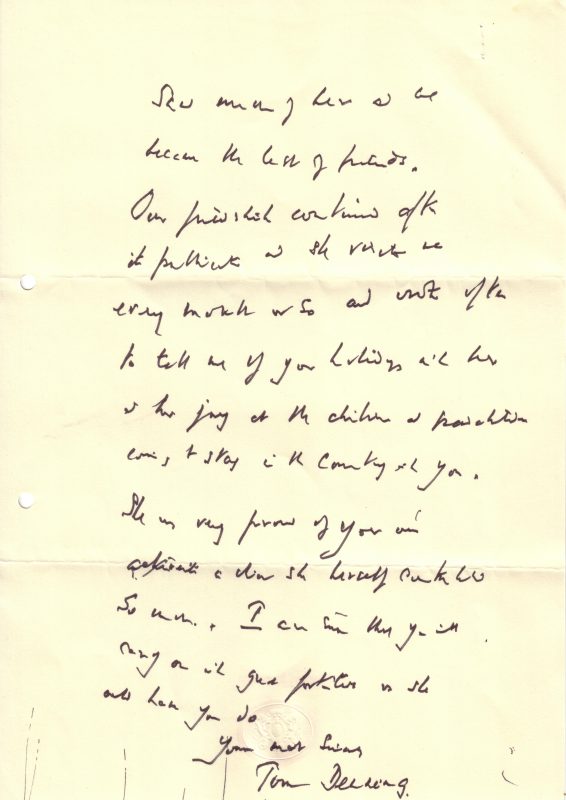 Saw much of her and we
became the best of friends.
Our friendship continued after
its publication and she wrote me
every month or so and wrote often
to tell me of your holidays with her
and her joy at the children and grandchildren
coming to stay in the country with you.
She was very proud of your own
a she herself contributed
So much. I am sure that you will
carry on with great fortitude as she
would have you do
Yours most sincerely
Tom Denning.